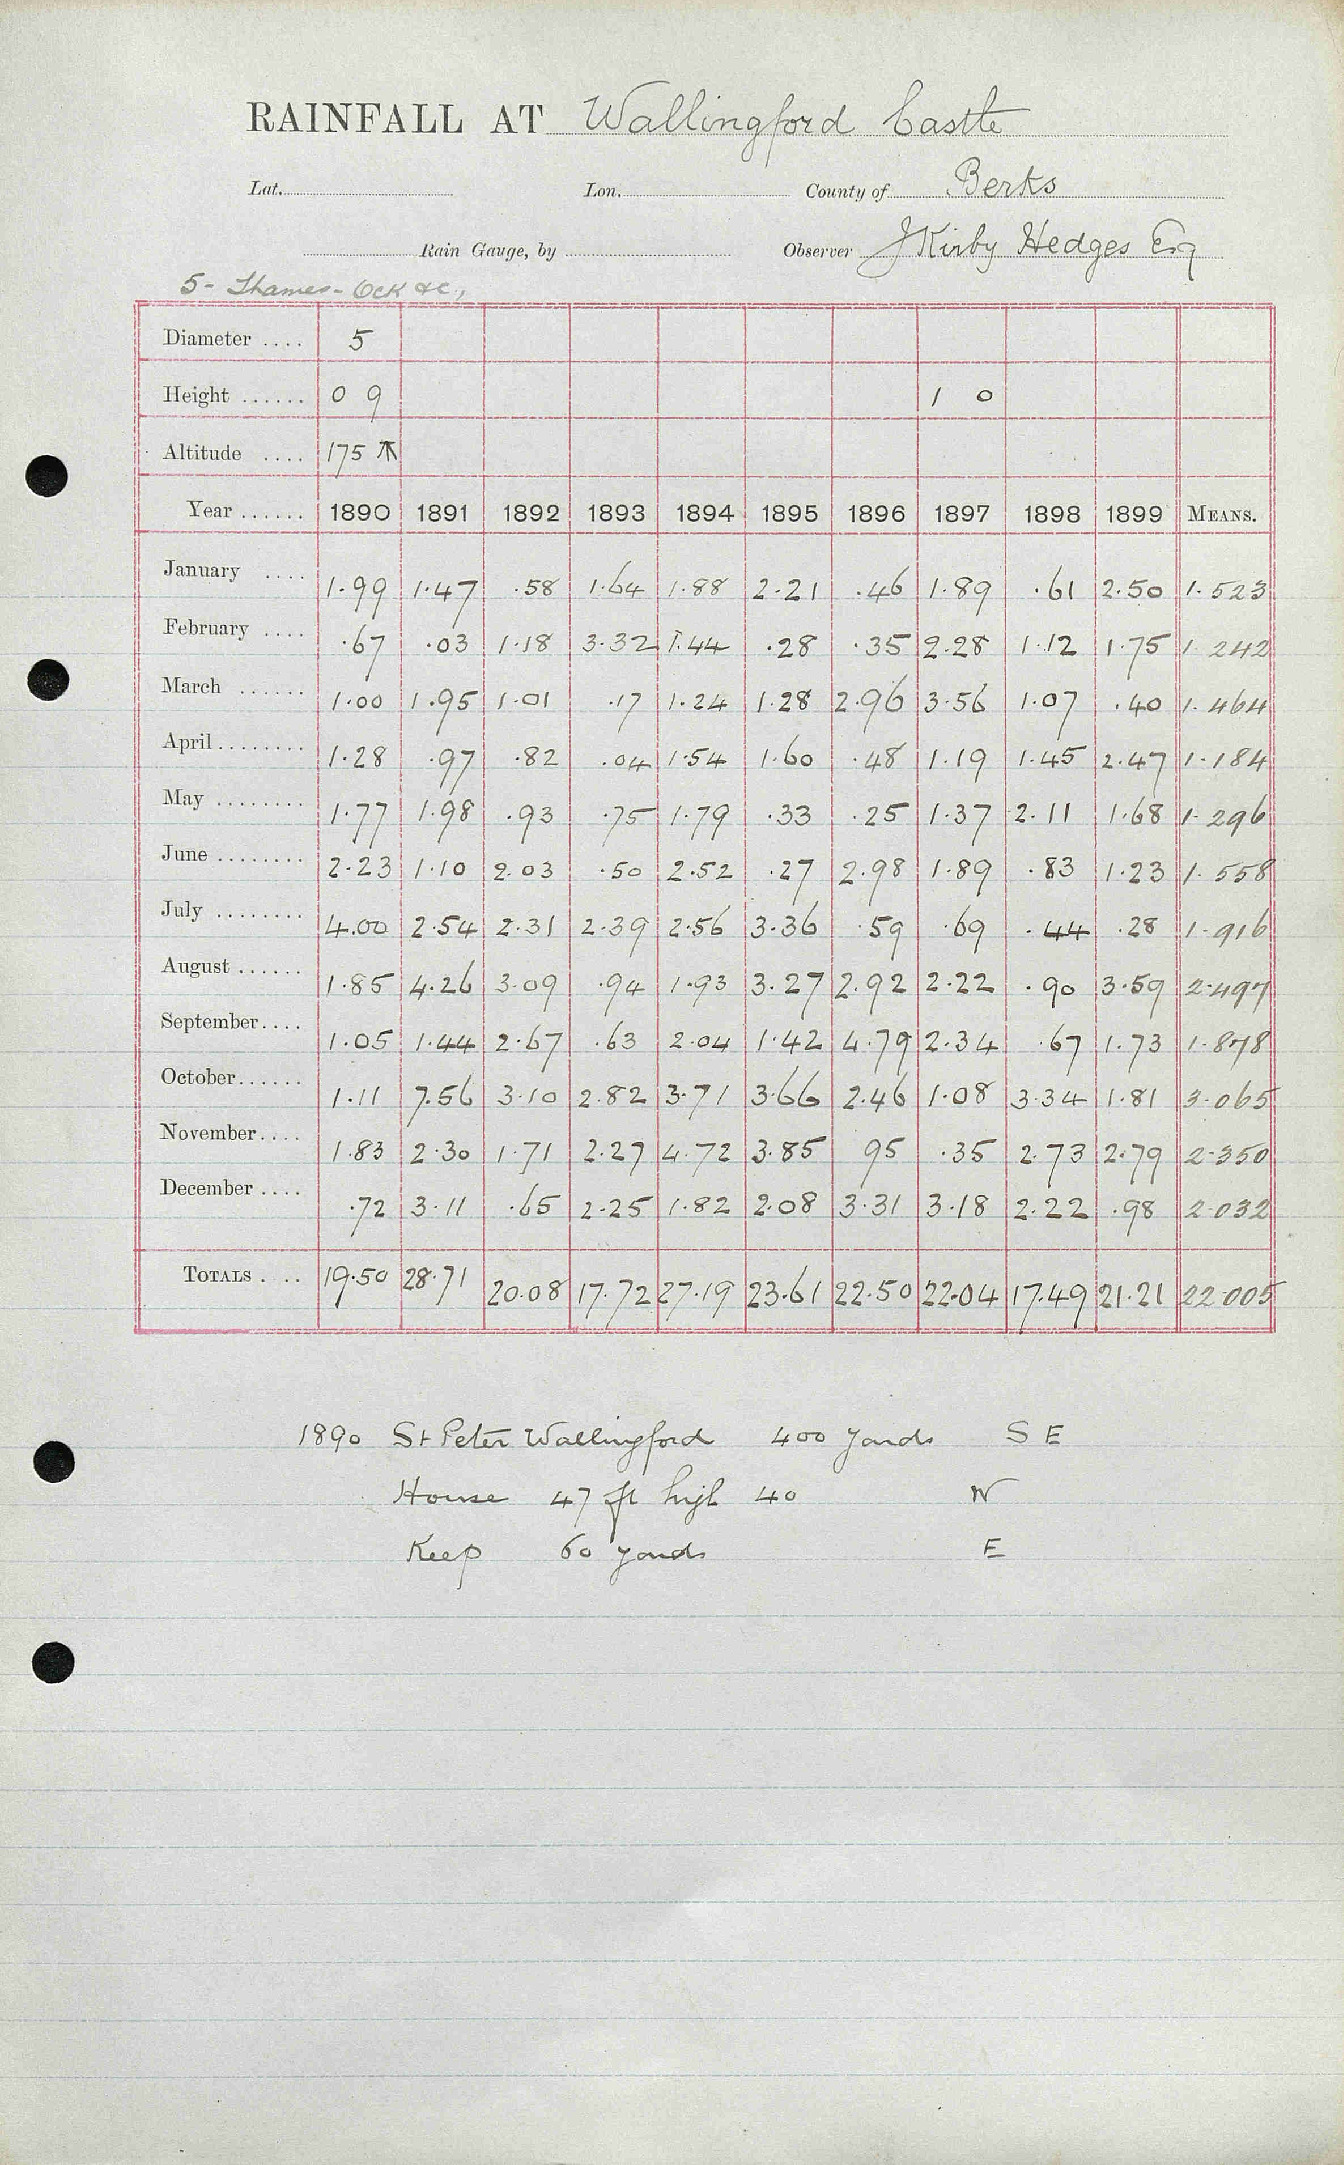 RAINFALL AT Wallingford Castle
Lat. Lon. County of Berks
Rain Gauge, by Observer J Kirby Hedges Esq
5 - Thames - Ock &c.,
Diameter .... 5
Height ...... 0 9 1 0
Altitude .... 175
Year ...... 1890 1891 1892 1893 1894 1895 1896 1897 1898 1899 MEANS.
January .... 1.99 1.47 .58 1.64 1.88 2.21 .46 1.89 .61 2.50 1.523
February .... .67 .03 1.18 3.32 1.44 .28 .35 2.28 1.12 1.75 1.242
March ...... 1.00 1.95 1.01 .17 1.24 1.28 2.96 3.56 1.07 .40 1.464
April ........ 1.28 .97 .82 .04 1.54 1.60 .48 1.19 1.45 2.47 1.184
May ........ 1.77 1.98 .93 .75 1.79 .33 .25 1.37 2.11 1.68 1.296
June ........ 2.23 1.10 2.03 .50 2.52 .27 2.98 1.89 .83 1.23 1.558
July ........ 4.00 2.54 2.31 2.39 2.56 3.36 .59 .69 .44 .28 1.916
August ...... 1.85 4.26 3.09 .94 1.93 3.27 2.92 2.22 .90 3.59 2.497
September .... 1.05 1.44 2.67 .63 2.04 1.42 4.79 2.34 .67 1.73 1.878
October ...... 1.11 7.56 3.10 2.82 3.71 3.66 2.46 1.08 3.34 1.81 3.065
November .... 1.83 2.30 1.71 2.27 4.72 3.85 95 .35 2.73 2.79 2.350
December .... .72 3.11 .65 2.25 1.82 2.08 3.31 3.18 2.22 .98 2.032
TOTALS .... 19.50 28.71 20.08 17.72 27.19 23.61 22.50 22.04 17.49 21.21 22.005
1890 St Peter Wallingford 400 yards S E
House 47 ft high 40 W
Keep 60 yards E